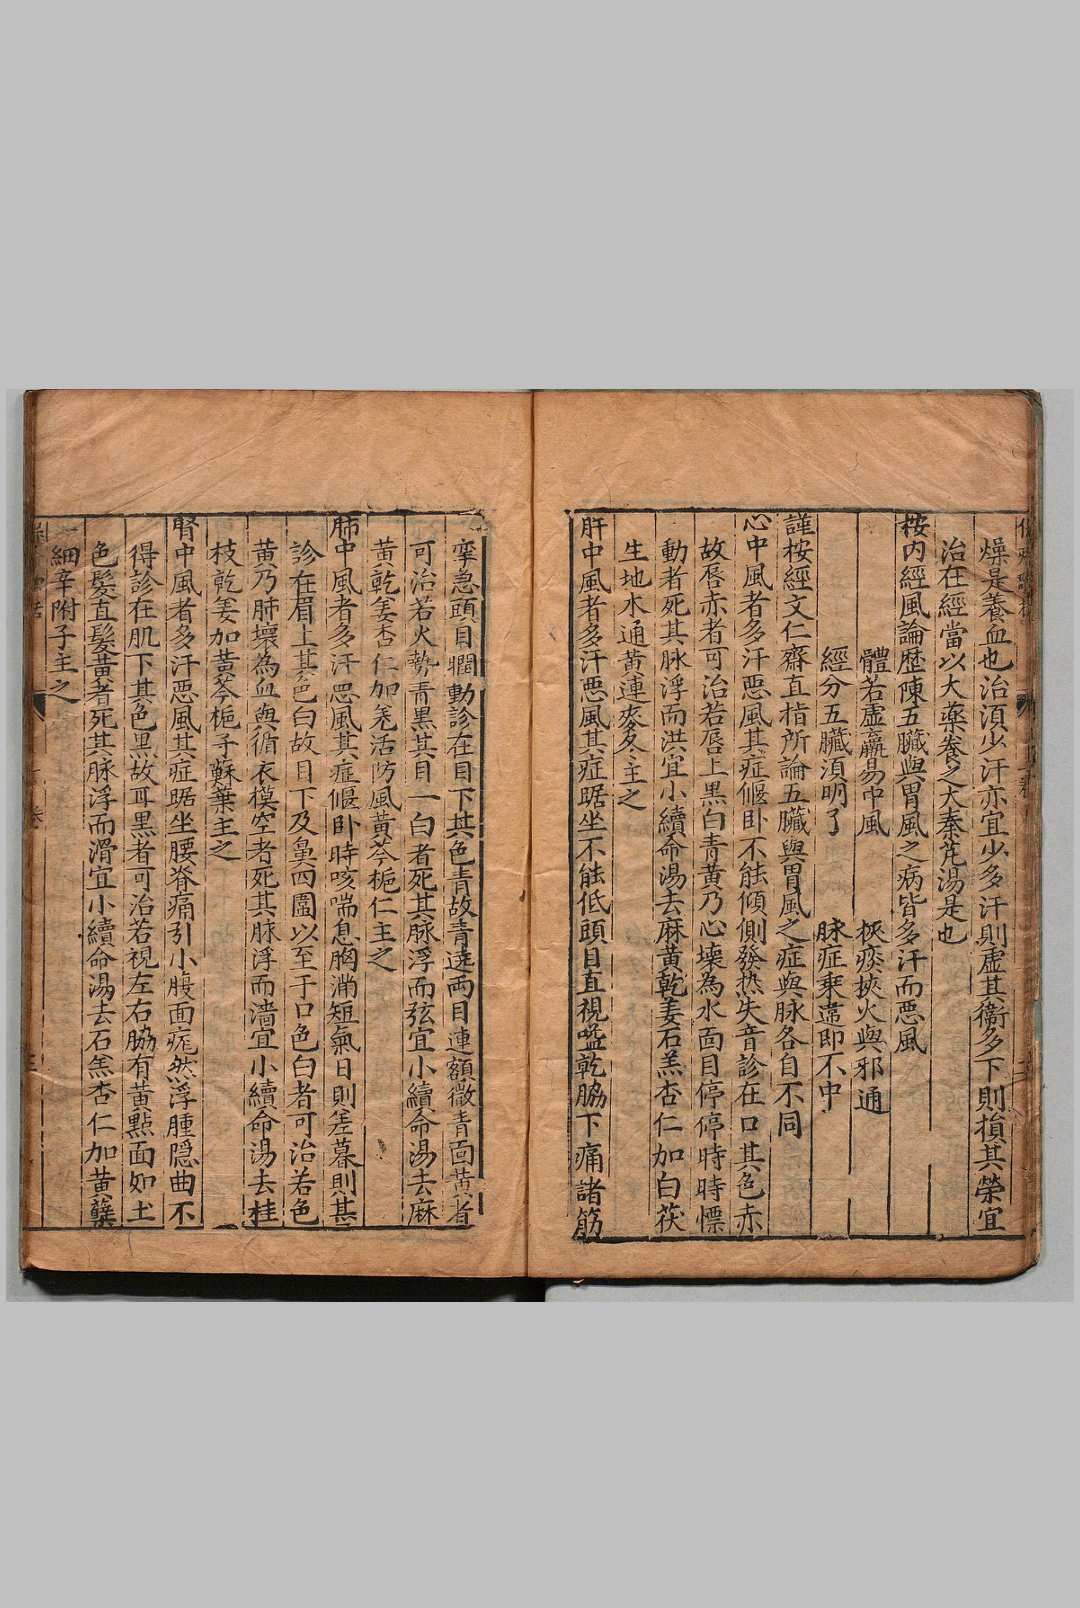 燥是養血也治湏少汗亦宜少多汗則虛其衞多下則損其榮宜
治在經當以大藥養之大秦芃湯是也
按内經風論歷陳五臟與胃風之病皆多汗而惡風
體若虛羸易中風 挾痰挾火與邪通
經分五臟湏明了 脉症乘違即不中
謹按經文仁齋直指所論五臟與胃風之症與脉各自不同
心中風者多汗惡風其症偃卧不能傾側發热失音診在口其色赤
故唇赤者可治若唇上黒白青黄乃心壊為水面目停停時時慄
動者死其脉浮而洪宜小續命湯去麻黄乾姜石羔杏仁加白茯
生地木通黄連麥冬主之
肝中風者多汗惡風其症踞坐不能低頭目直視嗌乾脇下痛諸筋
孿急頭目瞤動診在目下其色青故青遶两目連額微青面黄者
可治若火勢青黒其目一白者死其脉浮而弦宜小續命湯去麻
黄乾姜杏仁加羌活防風黄芩梔仁主之
肺中風者多汗惡風其症偃卧時咳喘息胸满短氣日則差暮則甚
診在眉上其色白故目下及鼻四圍以至于口色白者可治若色
黄乃肺壊為血與循衣摸空者死其脉浮而濇宜小續命湯去桂
枝乾姜加黄芩梔子蘇葉主之
腎中風者多汗惡風其症踞坐腰脊痛引小腹面痝然浮腫隠曲不
得診在肌下其色黒故耳黒者可治若視左右脇有黄點面如土
色髮直髮黄者死其脉浮而滑宜小續命湯去石羔杏仁加黄蘗
細辛附子主之